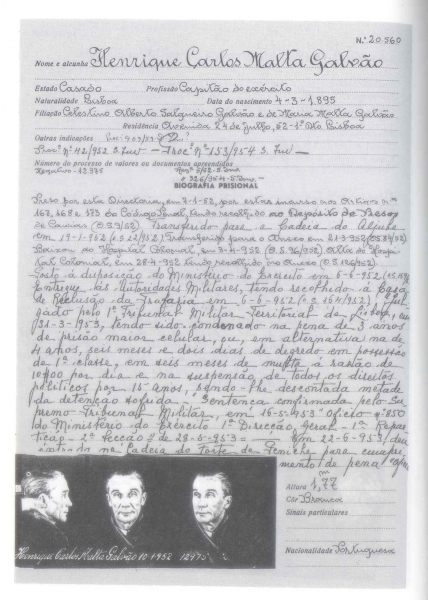 N.º 20.560
Nome e alcunha Henrique Carlos Malta Galvão
Estado Casado Profissão Capitão do exército
Naturalidade Lisboa Data do nascimento 4-3-1.895
Filiação Celestino Alberto Salgueiro Galvão e de Maria Malta Galvão
Residência Avenida 24 de Julho, 52-1º Dtº Lisboa
Outras indicações
Procº Nº 42/952 3. Juv — Procº Nº 153/954 3. Juv —
Número do processo de valores ou documentos apreendidos
12.975
BIOGRAFIA PRISIONAL
Preso por esta Directoria, em 7-1-52, por estar incurso nos Artigos nos
167, 168 e 173 do Código Penal, tendo recolhido ao Depósito de Presos
de Caxias Transferido para a Cadeia do Aljube
em 19-1-952 Transferido para o Anexo em 21-3-952
Baixou ao Hospital Colonial, em 3-4-952 Alta do Hospi-
tal Colonial, em 28-4-952 tendo recolhido ao Anexo
Posto à disposição do Ministério do Exército em 6-6-952
Entregue às Autoridades Militares, tendo recolhido à Casa
de Reclusão da Trafaria em 6-6-952 (O.S. 164/952) Jul-
gado pelo 1º Tribunal Militar Territorial de Lisboa, em
31-3-1953, tendo sido condenado na pena de 3 anos
de prisão maior celular, ou, em alternativa na de
4 anos, seis meses e dois dias de degredo em possessão
de 1ª classe, em seis meses de multa à razão de
10$00 por dia e na suspensão de todos os direitos
políticos por 15 anos, sendo-lhe descontada metade
da detenção sofrida — Sentença confirmada pelo Su-
premo Tribunal Militar, em 16-5-953 "Ofício nº 850
do Ministério do Exército - 1ª Direcção Geral - 1ª Repar-
tição - 2ª Secção de 28-6-953 = — Em 22-6-953, deu
entrada na Cadeia do Forte de Peniche para cumpri-
mento de pena
Altura 1,77 m
Côr Branca
Sinais particulares
Nacionalidade Portuguesa
Henrique Carlos Malta Galvão 10 1952 12975